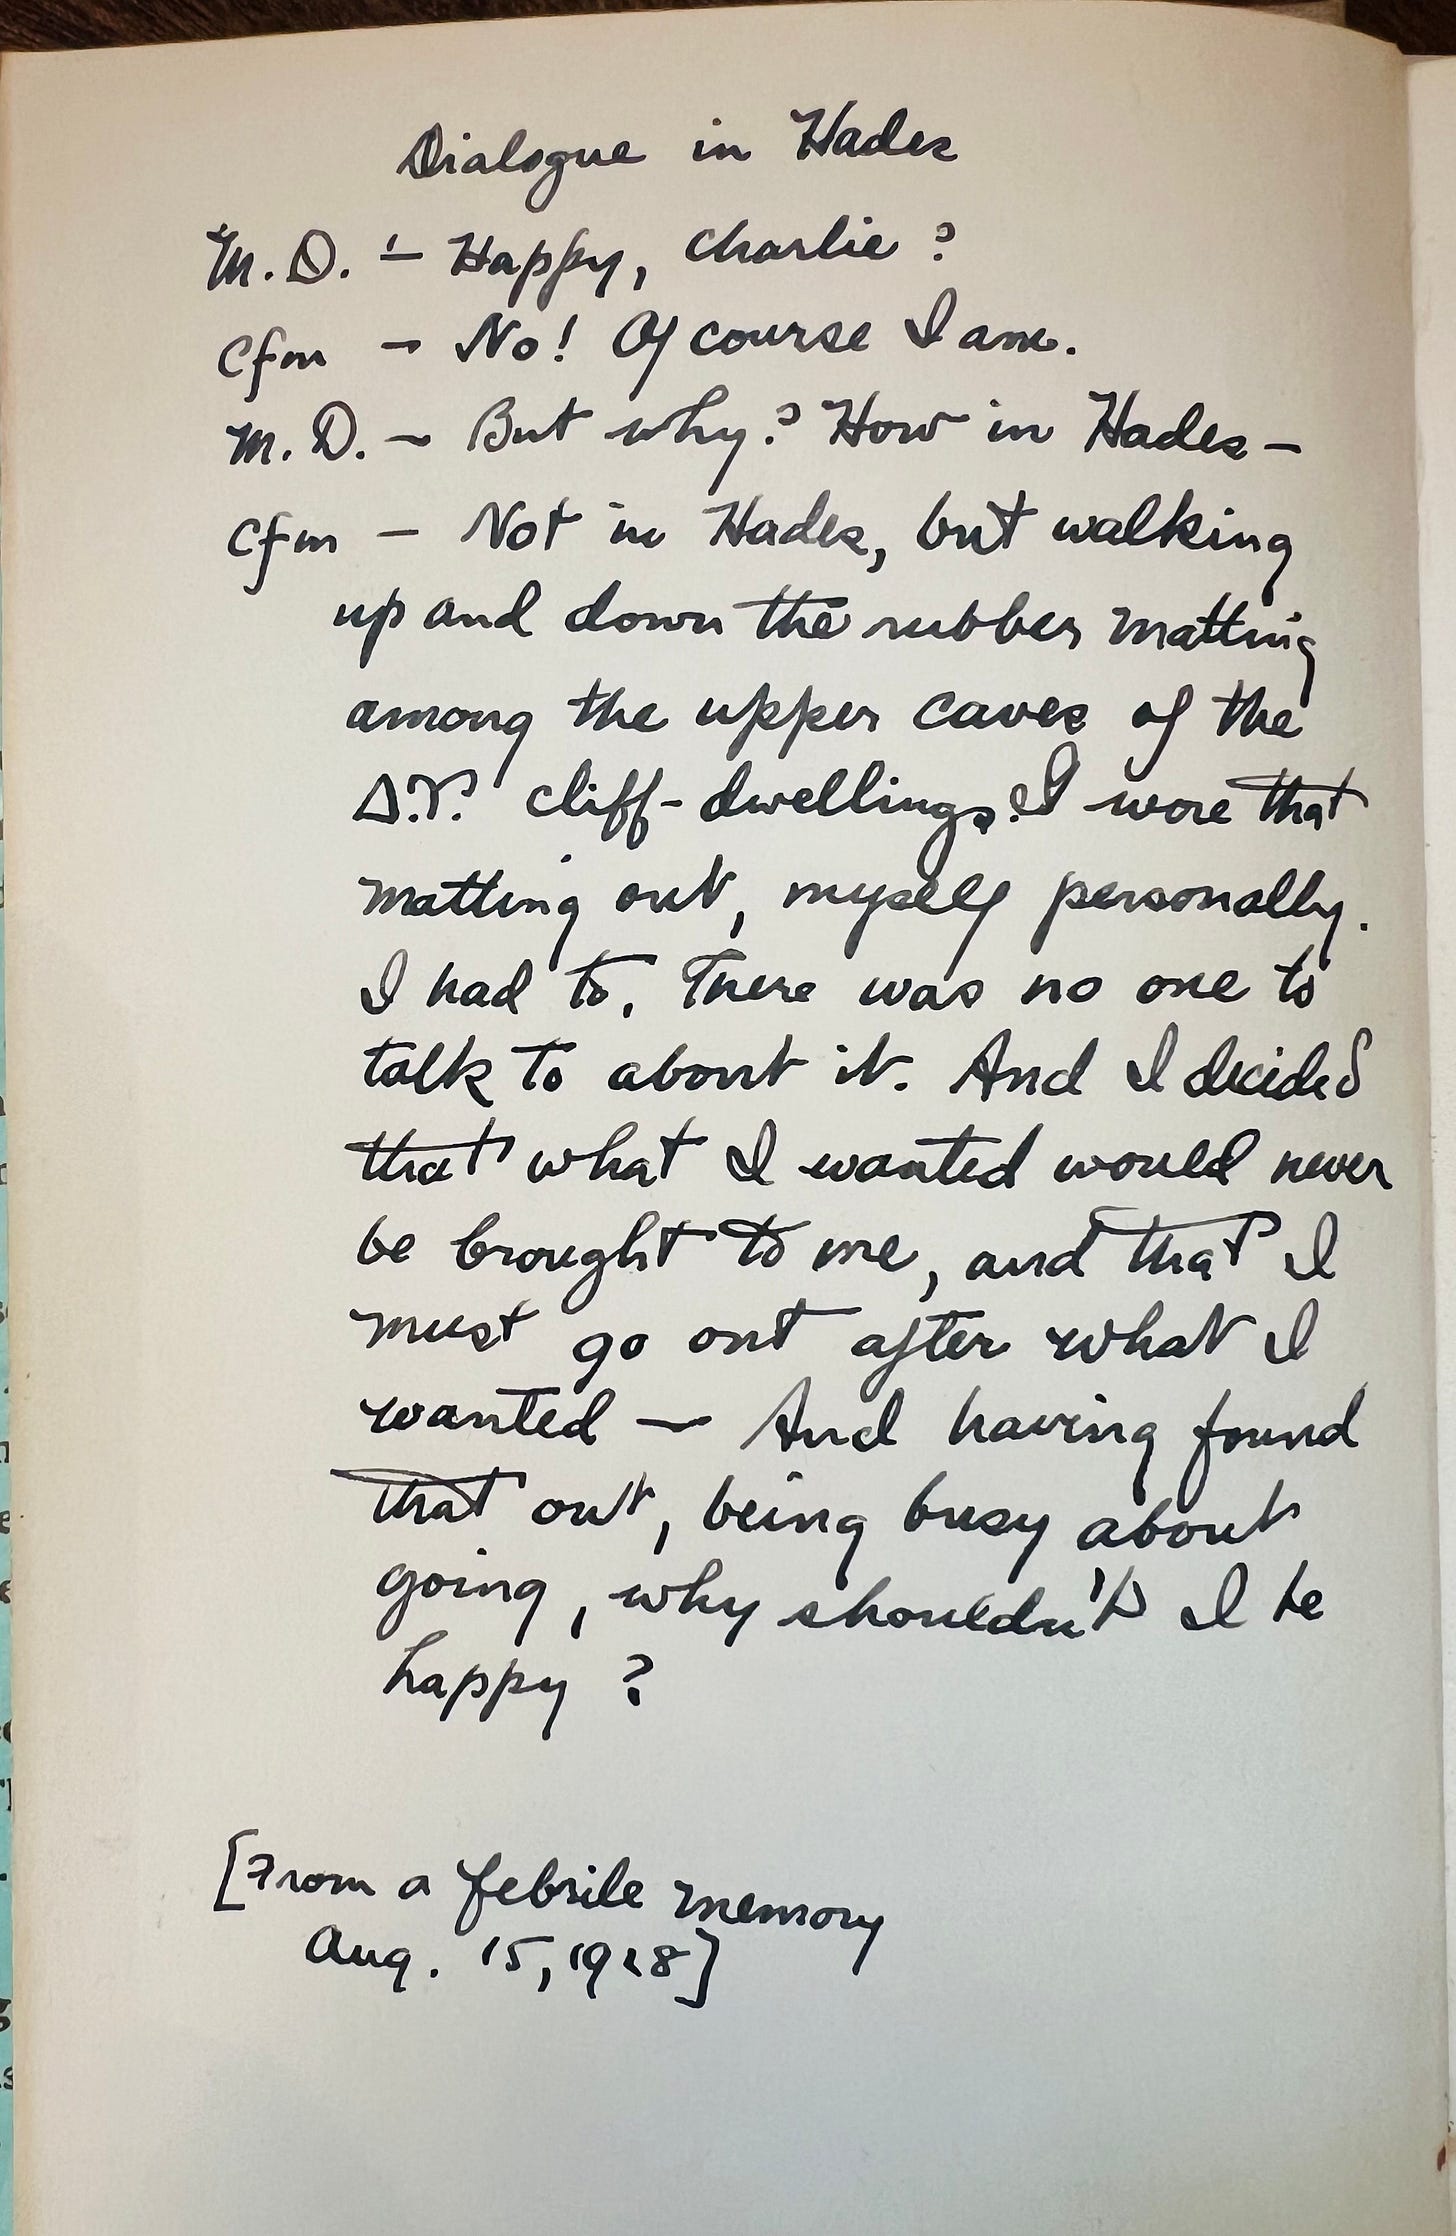 Dialogue in Hades
M. D. — Happy, Charlie?
Cfm — No! Of course I am.
M. D. — But why? How in Hades —
Cfm — Not in Hades, but walking
up and down the rubber matting
among the upper caves of the
Δ.Υ. cliff-dwellings. I wore that
matting out, myself personally.
I had to. There was no one to
talk to about it. And I decided
that what I wanted would never
be brought to me, and that I
must go out after what I
wanted — And having found
that out, being busy about
going, why shouldn't I be
happy?
[From a febrile memory
Aug. 15, 1928]